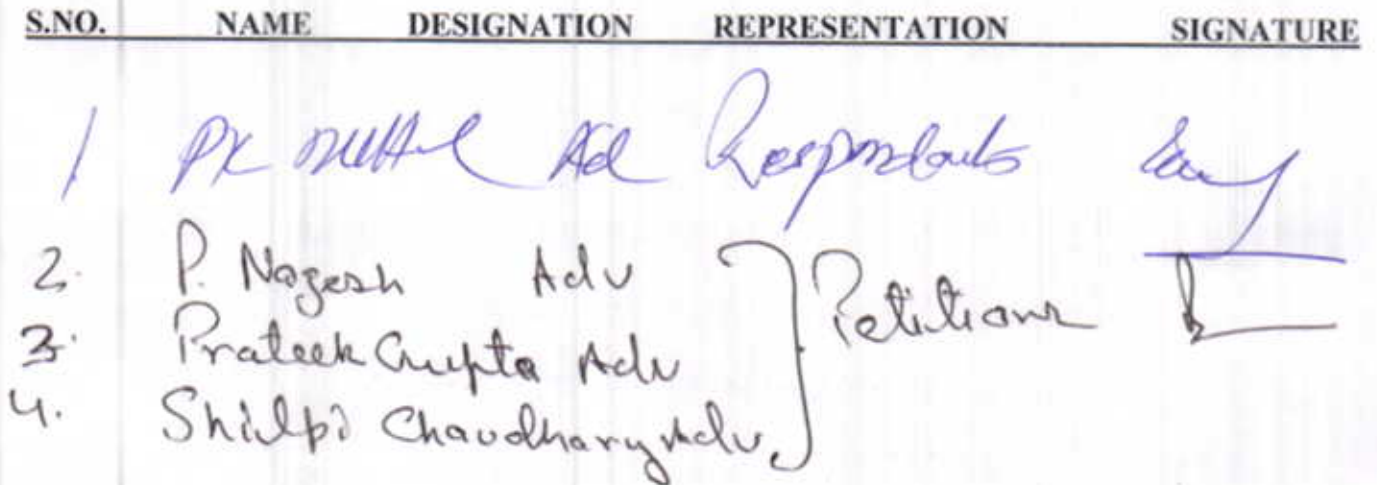 S.NO. NAME DESIGNATION REPRESENTATION SIGNATURE
1 PK Mittal Ad Respondents
2. P. Nagesh Adv
3. Prateek Gupta Adv Petitioner
4. Shilpi Chaudhary Adv.